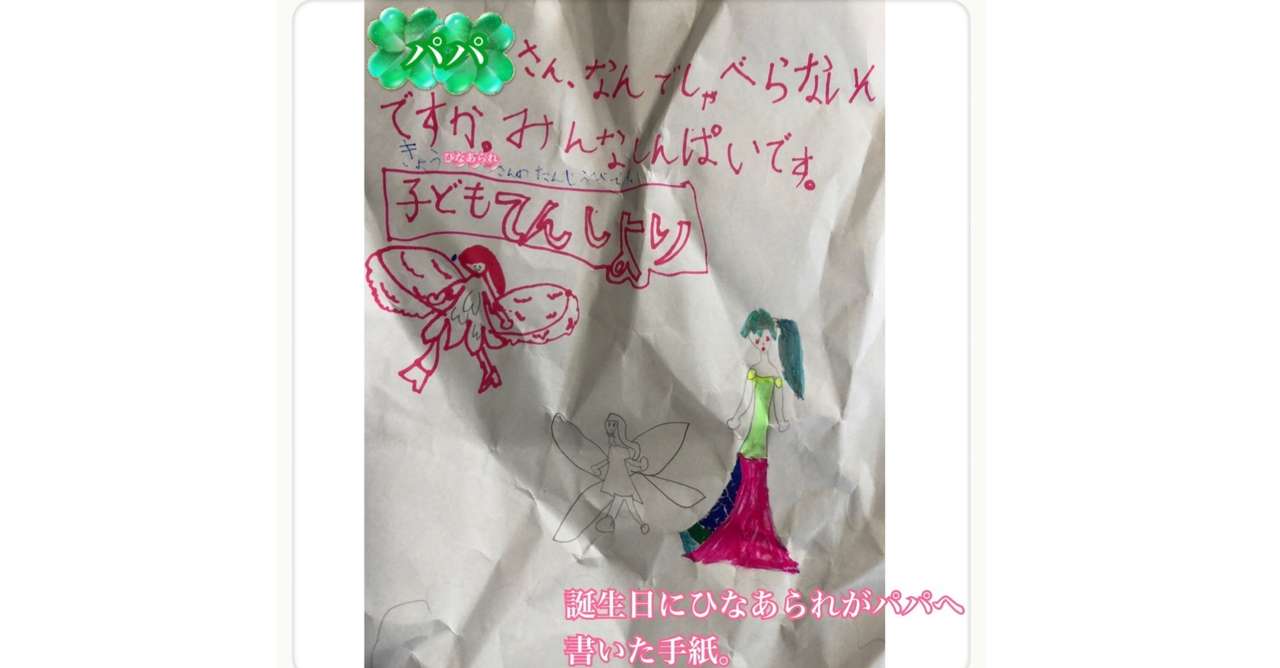 パパさん、なんでしゃべらないん
ですか。みんなしんぱいです。
きょうひなあられさんのたんじょうびです
子どもてんしより
誕生日にひなあられがパパへ
書いた手紙。